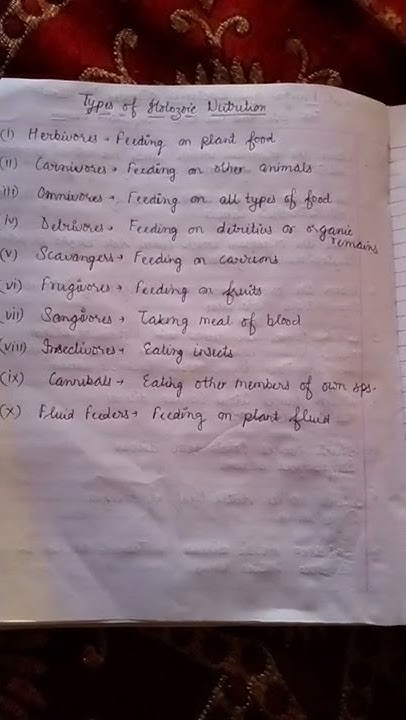 Types of Holozoic Nutrition
(i) Herbivores → Feeding on plant food
(ii) Carnivores → Feeding on other animals
iii) Omnivores → Feeding on all types of food
iv) Detrivores → Feeding on detritius or organic remains
(v) Scavangers → Feeding on carrions
(vi) Frugivores → Feeding on fruits
(vii) Sangivores → Taking meal of blood
(viii) Insectivores → Eating insects
(ix) Cannibals → Eating other members of own sps.
(x) Fluid Feeders → Feeding on plant fluid